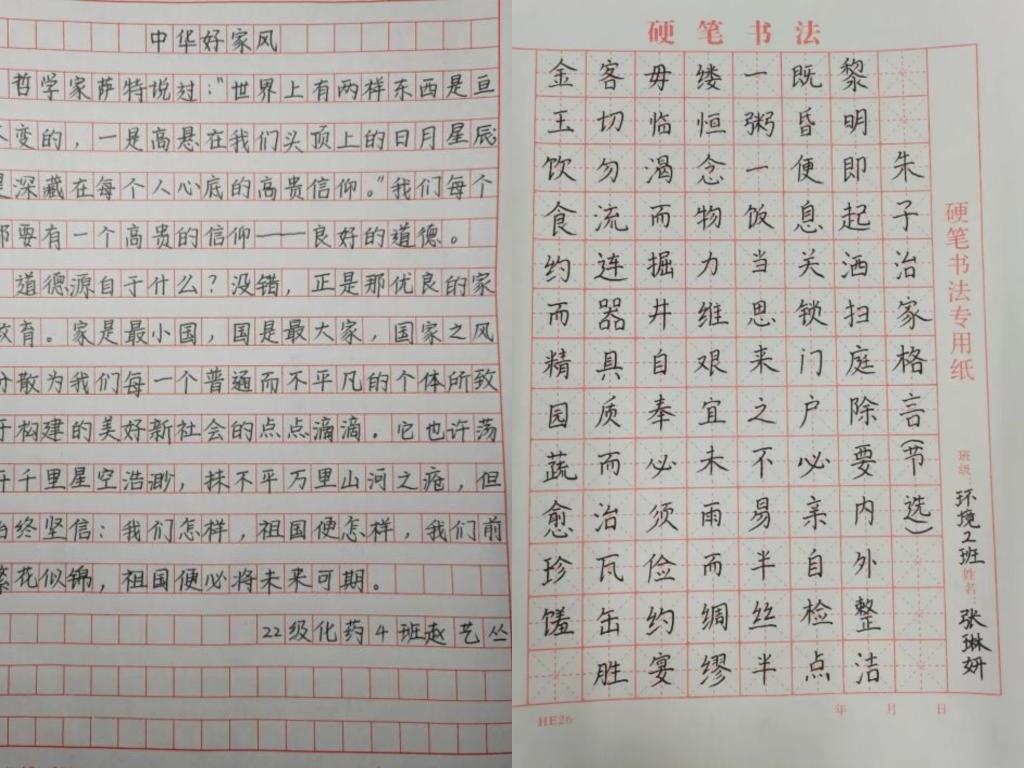 中华好家风
哲学家萨特说过："世界上有两样东西是亘
不变的，一是高悬在我们头顶上的日月星辰
是深藏在每个人心底的高贵信仰。"我们每个
都要有一个高贵的信仰——良好的道德。
道德源自于什么？没错，正是那优良的家
教育。家是最小国，国是最大家，国家之风
分散为我们每一个普通而不平凡的个体所致
于构建的美好新社会的点点滴滴。它也许荡
开千里星空浩渺，抹不平万里山河之疮，但
始终坚信：我们怎样，祖国便怎样，我们前
繁花似锦，祖国便必将未来可期。
22级化药4班赵艺丛
硬笔书法
硬笔书法专用纸
班级：环境2班 姓名：张琳妍
朱子治家格言(节选)
黎明即起洒扫庭除要内外整洁
既昏便息关锁门户必亲自检点
一粥一饭当思来之不易半丝半
缕恒念物力维艰宜未雨而绸缪
毋临渴而掘井自奉必须俭约宴
客切勿流连器具质而治瓦缶胜
金玉饮食约而精园蔬愈珍馐
HE26
年 月 日